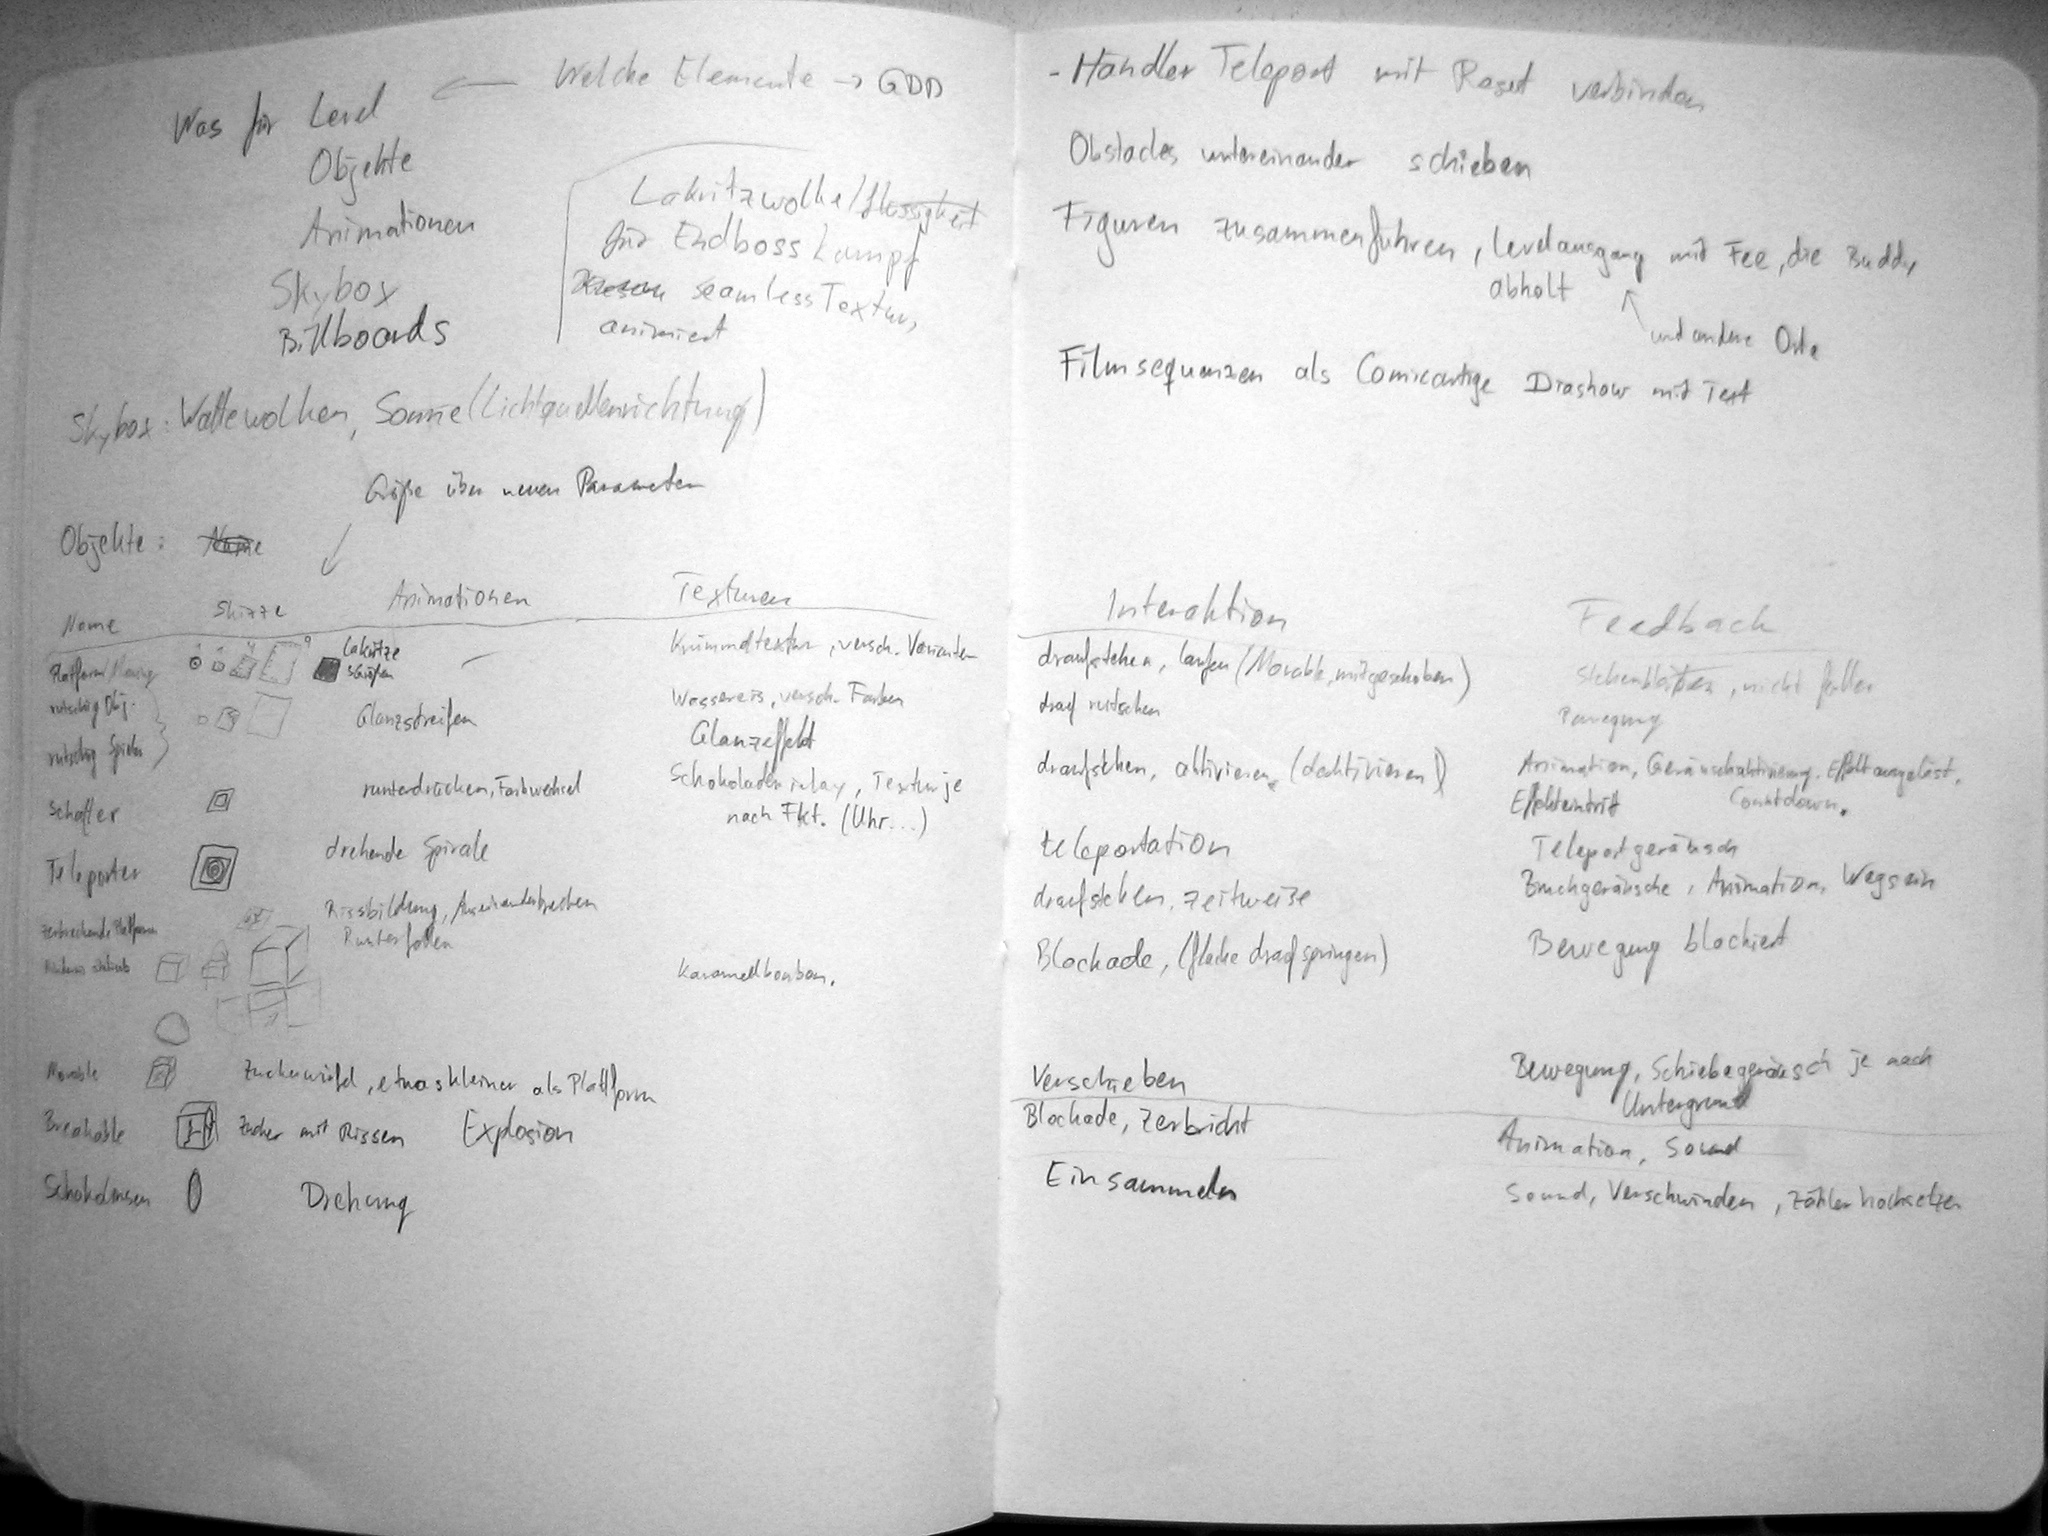 Welche Elemente → GDD
Was für Level
Objekte
Animationen
Skybox
Billboards
Lakritzwolke/flüssigkeit
für Endboss Kampf
seamless Textur,
animiert
Skybox: Wattewolken, Sonne (Lichtquellenrichtung)
Größe über neuen Parameter
Objekte: Name
Name Skizze Animationen Texturen
Platform/Moving Lakritze Krümmeltextur, versch. Varianten
4 Größen
rutschig Obj. Glanzstreifen Wassereis, versch. Farben
rutschig Spieler Glanzeffekt
Schalter runterdrücken, Farbwechsel Schokoladeninlay, Textur je
nach Fkt. (Uhr...)
Teleporter drehende Spirale
zerbrechende Plattform Rissbildung, Auseinanderbrechen
Runterfallen
Karamellbonbon.
Movable Zuckerwürfel, etwas kleiner als Plattform
Breakable Zucker mit Rissen Explosion
Schokolinsen Drehung
- Händler Teleport mit Reset verbinden
Obstacles untereinander schieben
Figuren zusammenführen, Levelausgang mit Fee, die Buddy
abholt
und andere Orte
Filmsequenzen als Comicartige Diashow mit Text
Interaktion Feedback
draufstehen, laufen (Movable, mitgeschoben) stehenbleiben, nicht fallen
drauf rutschen Bewegung
draufstehen, aktivieren, (deaktivieren) Animation, Geräuschaktivierung, Effekt ausgelöst,
Effekteintritt Countdown.
teleportation Teleportgeräusch
draufstehen, zeitweise Bruchgeräusche, Animation, Wegsein
Blockade, (flache draufspringen) Bewegung blockiert
Verschieben Bewegung, Schiebegeräusch je nach
Untergrund
Blockade, Zerbricht Animation, Sound
Einsammeln Sound, Verschwinden, Zähler hochsetzen